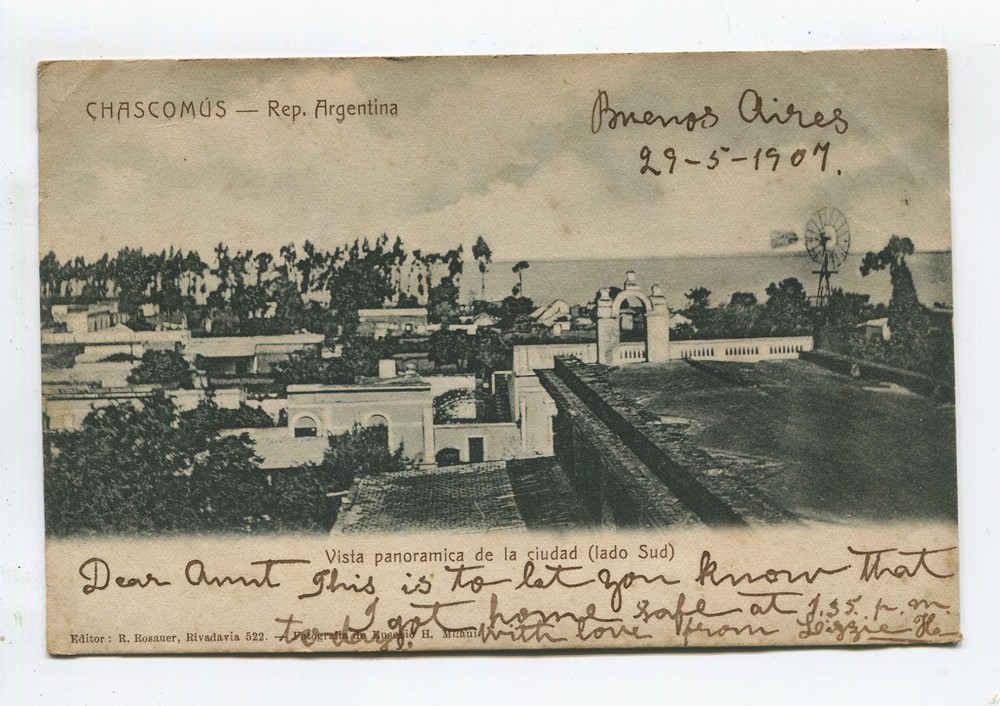 CHASCOMÚS — Rep. Argentina
Buenos Aires
29-5-1907.
Vista panoramica de la ciudad (lado Sud)
Dear Aunt This is to let you know that
I got home safe at 1.55. p.m.
to day. With love from Lizzie
Editor: R. Rosauer, Rivadavia 522. — Fotografia de Eusebio H.